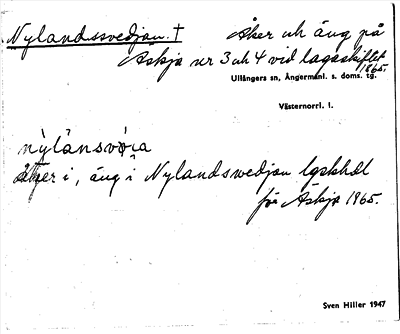 Nylandssvedjan. † Åker och äng på
Äskja nr 3 och 4 vid lagaskiftet
1865.
Ullångers sn, Ångermanl. s. doms. tg.
Västernorrl. l.
nỳlánsvø̀ɩa
åker i, äng i Nylandswedjan lgskhdl
för Äskja 1865.
Sven Hiller 1947